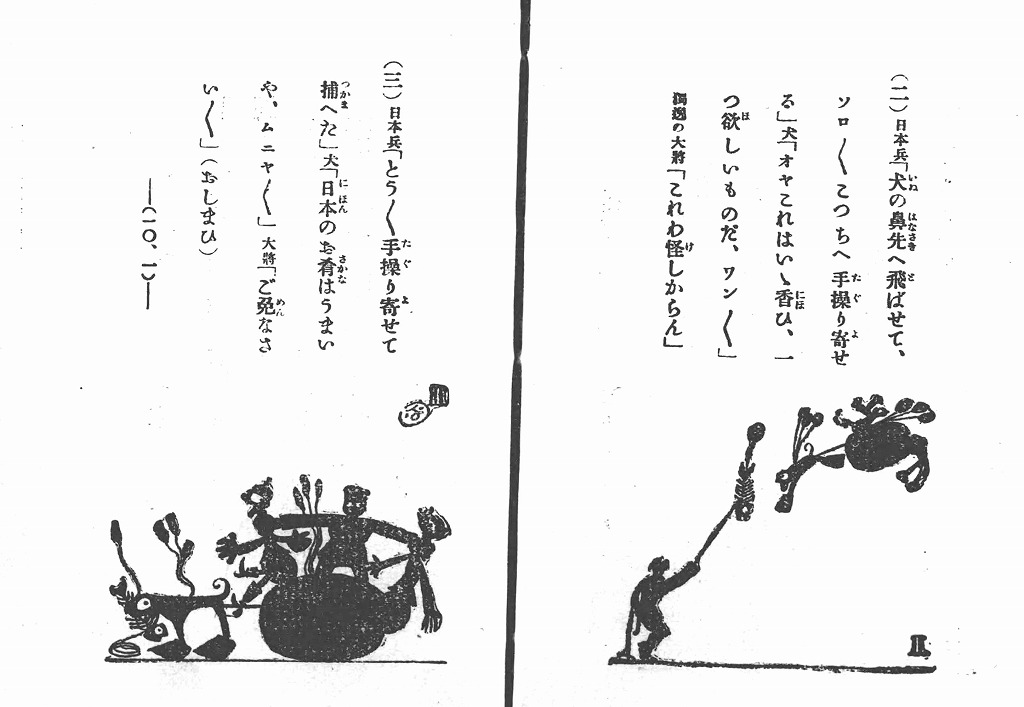 (二)日本兵「犬の鼻先へ飛ばせて、
ソロ〱こつちへ手操り寄せ
る」犬「オヤこれはいゝ香ひ、一
つ欲しいものだ、ワン〱」
獨逸の大將「これわ怪しからん」
II
(三)日本兵「とう〱手操り寄せて
捕へた」犬「日本のお肴はうまい
や、ムニャ〱」大將「ご免なさ
い〱」(おしまひ)
―(一〇、一)―
III